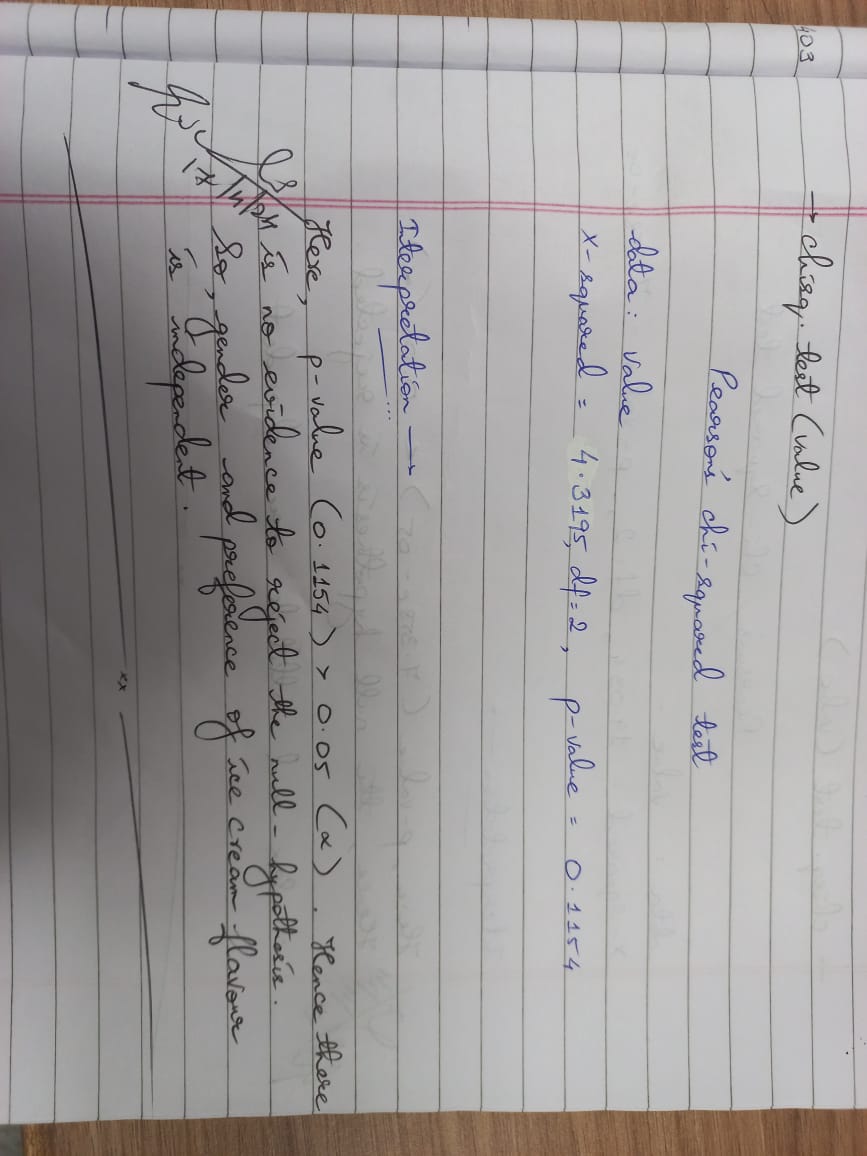 403
→ chisq. test (value)
Pearson's chi-squared test
data: value
x-squared = 4.3195, df=2, p-value = 0.1154
Interpretation →
Here, p-value (0.1154) > 0.05 (α). Hence there
is no evidence to reject the null-hypothesis.
So, gender and preference of ice cream flavour
is independent.
xx